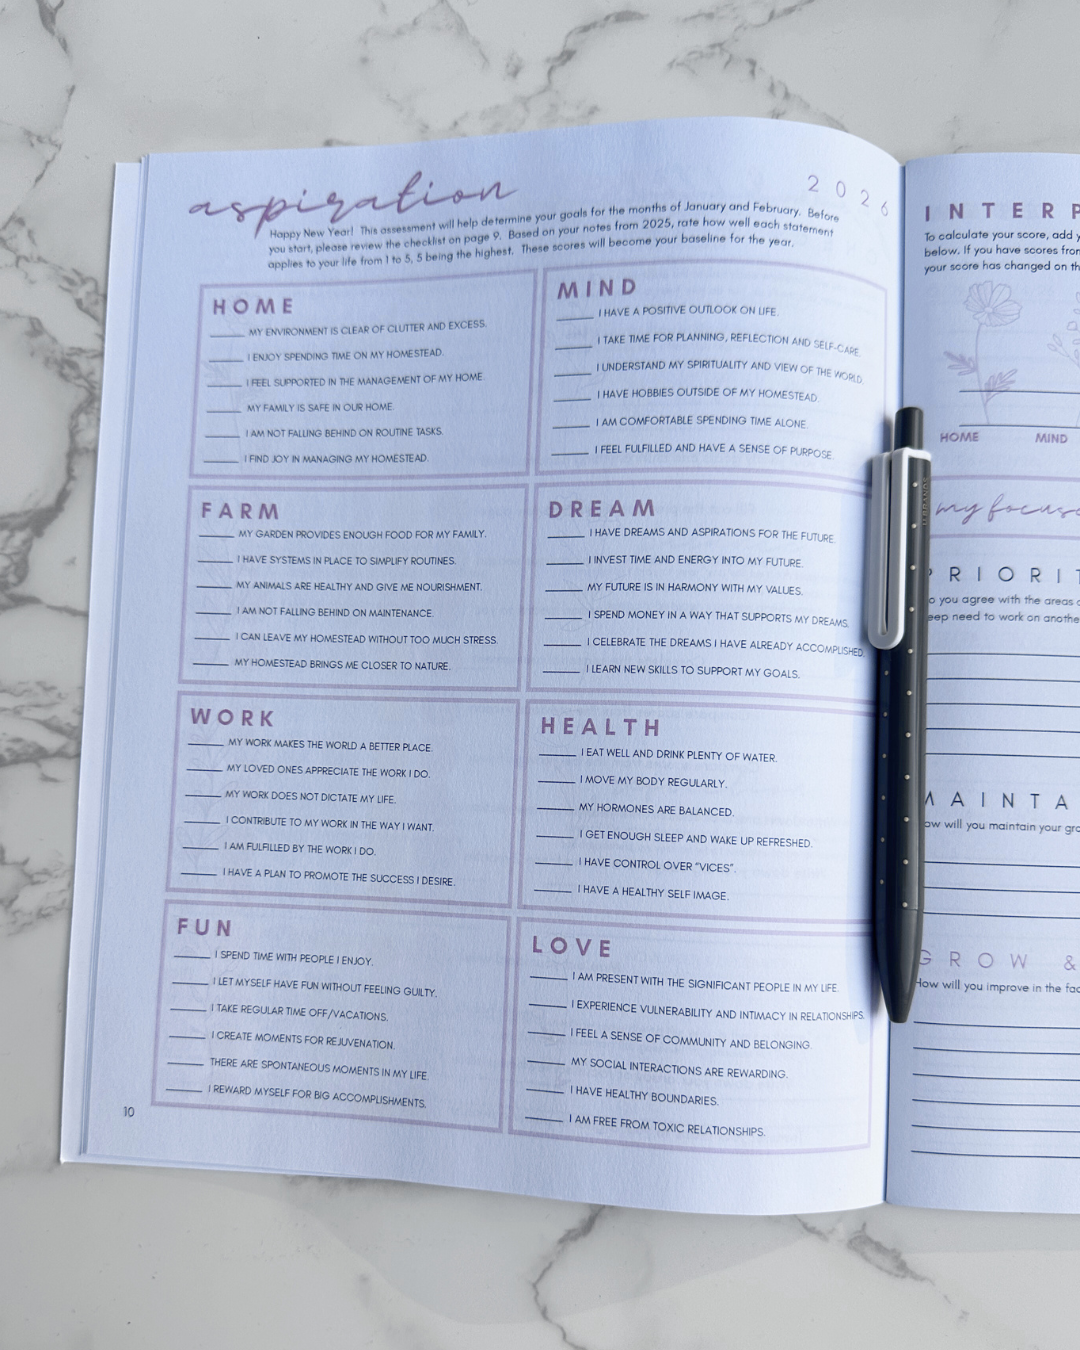 aspiration
2026
Happy New Year! This assessment will help determine your goals for the months of January and February. Before
you start, please review the checklist on page 9. Based on your notes from 2025, rate how well each statement
applies to your life from 1 to 5, 5 being the highest. These scores will become your baseline for the year.
HOME
MY ENVIRONMENT IS CLEAR OF CLUTTER AND EXCESS.
I ENJOY SPENDING TIME ON MY HOMESTEAD.
I FEEL SUPPORTED IN THE MANAGEMENT OF MY HOME.
MY FAMILY IS SAFE IN OUR HOME.
I AM NOT FALLING BEHIND ON ROUTINE TASKS.
I FIND JOY IN MANAGING MY HOMESTEAD.
MIND
I HAVE A POSITIVE OUTLOOK ON LIFE.
I TAKE TIME FOR PLANNING, REFLECTION AND SELF-CARE.
I UNDERSTAND MY SPIRITUALITY AND VIEW OF THE WORLD.
I HAVE HOBBIES OUTSIDE OF MY HOMESTEAD.
I AM COMFORTABLE SPENDING TIME ALONE.
I FEEL FULFILLED AND HAVE A SENSE OF PURPOSE.
FARM
MY GARDEN PROVIDES ENOUGH FOOD FOR MY FAMILY.
I HAVE SYSTEMS IN PLACE TO SIMPLIFY ROUTINES.
MY ANIMALS ARE HEALTHY AND GIVE ME NOURISHMENT.
I AM NOT FALLING BEHIND ON MAINTENANCE.
I CAN LEAVE MY HOMESTEAD WITHOUT TOO MUCH STRESS.
MY HOMESTEAD BRINGS ME CLOSER TO NATURE.
DREAM
I HAVE DREAMS AND ASPIRATIONS FOR THE FUTURE.
I INVEST TIME AND ENERGY INTO MY FUTURE.
MY FUTURE IS IN HARMONY WITH MY VALUES.
I SPEND MONEY IN A WAY THAT SUPPORTS MY DREAMS.
I CELEBRATE THE DREAMS I HAVE ALREADY ACCOMPLISHED.
I LEARN NEW SKILLS TO SUPPORT MY GOALS.
WORK
MY WORK MAKES THE WORLD A BETTER PLACE.
MY LOVED ONES APPRECIATE THE WORK I DO.
MY WORK DOES NOT DICTATE MY LIFE.
I CONTRIBUTE TO MY WORK IN THE WAY I WANT.
I AM FULFILLED BY THE WORK I DO.
I HAVE A PLAN TO PROMOTE THE SUCCESS I DESIRE.
HEALTH
I EAT WELL AND DRINK PLENTY OF WATER.
I MOVE MY BODY REGULARLY.
MY HORMONES ARE BALANCED.
I GET ENOUGH SLEEP AND WAKE UP REFRESHED.
I HAVE CONTROL OVER “VICES”.
I HAVE A HEALTHY SELF IMAGE.
FUN
I SPEND TIME WITH PEOPLE I ENJOY.
I LET MYSELF HAVE FUN WITHOUT FEELING GUILTY.
I TAKE REGULAR TIME OFF/VACATIONS.
I CREATE MOMENTS FOR REJUVENATION.
THERE ARE SPONTANEOUS MOMENTS IN MY LIFE.
I REWARD MYSELF FOR BIG ACCOMPLISHMENTS.
LOVE
I AM PRESENT WITH THE SIGNIFICANT PEOPLE IN MY LIFE.
I EXPERIENCE VULNERABILITY AND INTIMACY IN RELATIONSHIPS.
I FEEL A SENSE OF COMMUNITY AND BELONGING.
MY SOCIAL INTERACTIONS ARE REWARDING.
I HAVE HEALTHY BOUNDARIES.
I AM FREE FROM TOXIC RELATIONSHIPS.
10
INTERP
To calculate your score, add y
below. If you have scores from
your score has changed on th
HOME MIND
my focus
RIORIT
o you agree with the areas
eep need to work on anothe
AINTA
ow will you maintain your gro
GROW &
How will you improve in the fac